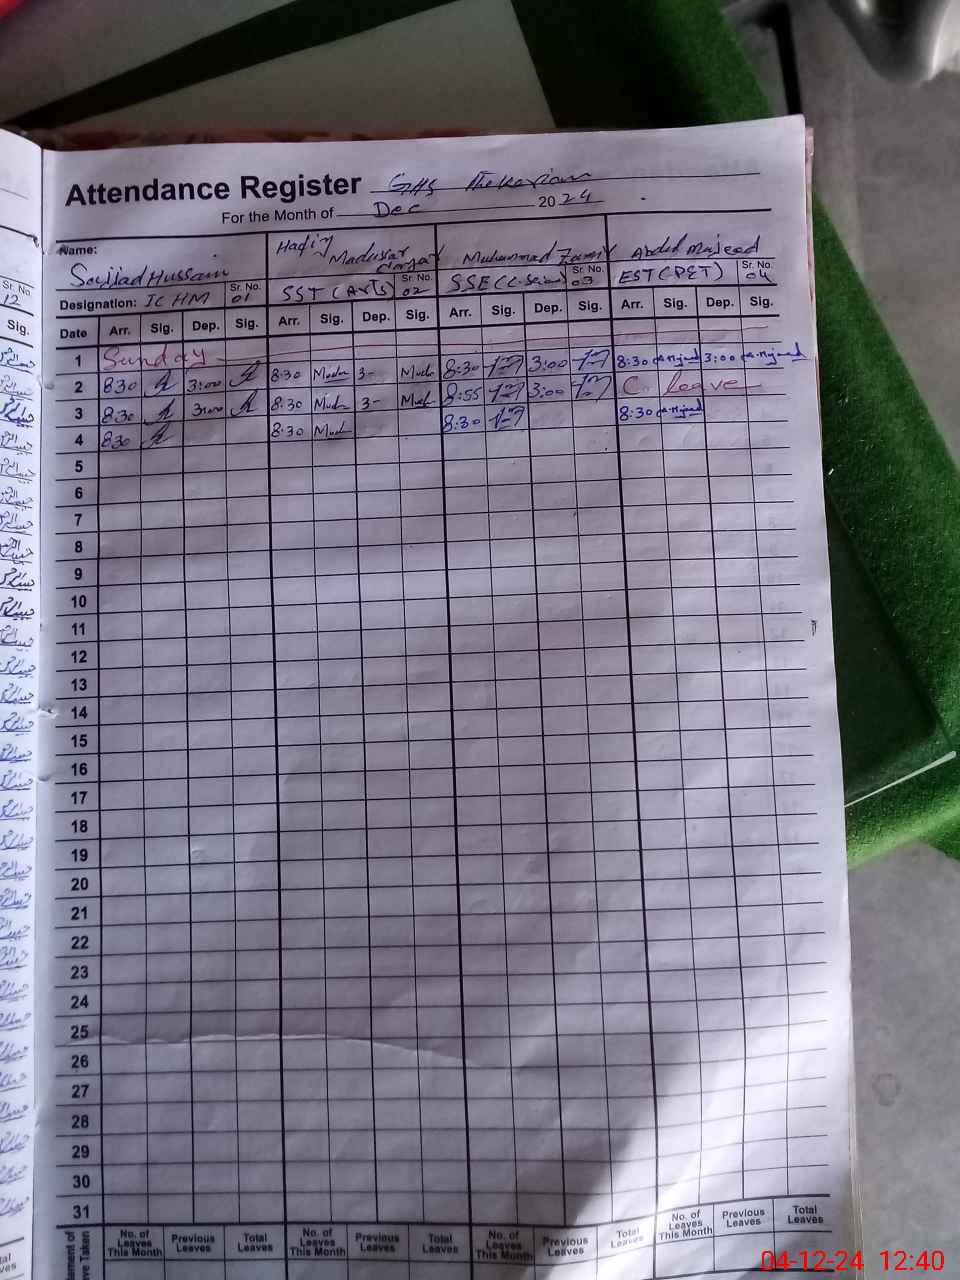 Attendance Register GHS Thekarian
For the Month of Dec 2024
Name: Sajjad Hussain Hafiz Madussar Muhammad Zamir Abdul Majeed
Designation: IC HM Sr. No. 01 SST (Arts) Sr. No. 02 SSE (C.Science) Sr. No. 03 EST (PET) Sr. No. 04
Date Arr. Sig. Dep. Sig. Arr. Sig. Dep. Sig. Arr. Sig. Dep. Sig. Arr. Sig. Dep. Sig.
1 Sunday
2 8:30 3:00 8:30 3- 8:30 3:00 8:30 3:00
3 8:30 3:00 8:30 3- 8:55 3:00 C. leave
4 8:30 8:30 8:30 8:30
5
6
7
8
9
10
11
12
13
14
15
16
17
18
19
20
21
22
23
24
25
26
27
28
29
30
31
No. of Leaves This Month Previous Leaves Total Leaves No. of Leaves This Month Previous Leaves Total Leaves No. of Leaves This Month Previous Leaves Total Leaves No. of Leaves This Month Previous Leaves Total Leaves
04-12-24 12:40